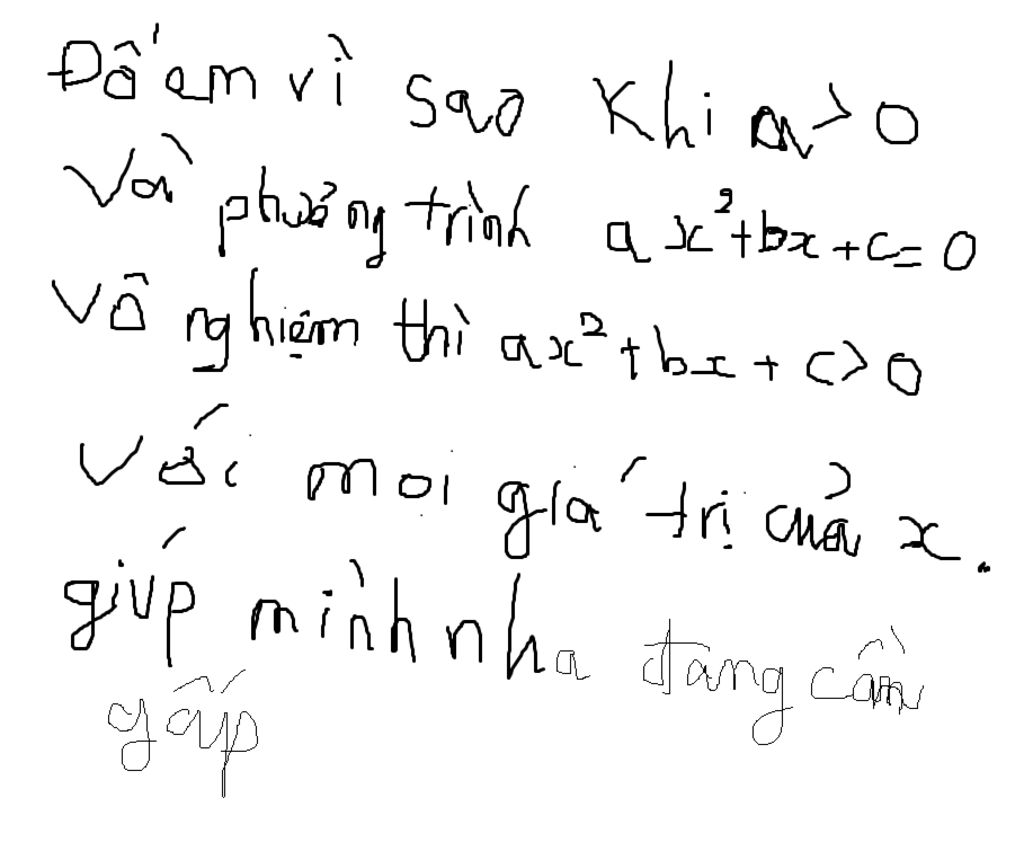 Đố em vì sao Khi a > 0
Và phương trình ax²+bx+c=0
Vô nghiệm thì ax²+bx+c>0
Với mọi giá trị của x.
giúp mình nha đang cần
gấp